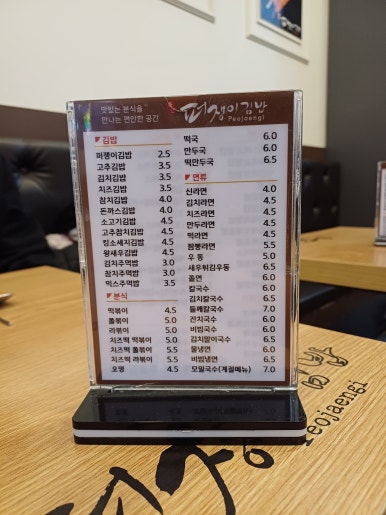 맛있는 분식을
만나는 편안한 공간
퍼쟁이김밥
Peojaengi
김밥
퍼쟁이김밥 2.5
고추김밥 3.5
김치김밥 3.5
치즈김밥 3.5
참치김밥 4.0
돈까스김밥 4.0
소고기김밥 4.5
고추참치김밥 4.5
킹소세지김밥 4.5
왕새우김밥 4.5
김치주먹밥 3.0
참치주먹밥 3.0
믹스주먹밥 3.5
분식
떡볶이 4.5
쫄볶이 5.0
라볶이 5.0
치즈떡 떡볶이 5.0
치즈떡 쫄볶이 5.5
치즈떡 라볶이 5.5
오뎅 4.5
떡국 6.0
만두국 6.0
떡만두국 6.5
면류
신라면 4.0
김치라면 4.5
치즈라면 4.5
만두라면 4.5
떡라면 4.5
짬뽕라면 5.5
우 동 5.0
새우튀김우동 6.5
쫄면 6.0
칼국수 6.0
김치칼국수 6.5
들깨칼국수 7.0
잔치국수 6.0
비빔국수 6.0
김치말이국수 6.5
물냉면 6.0
비빔냉면 6.5
모밀국수(계절메뉴) 7.0
Peojaengi